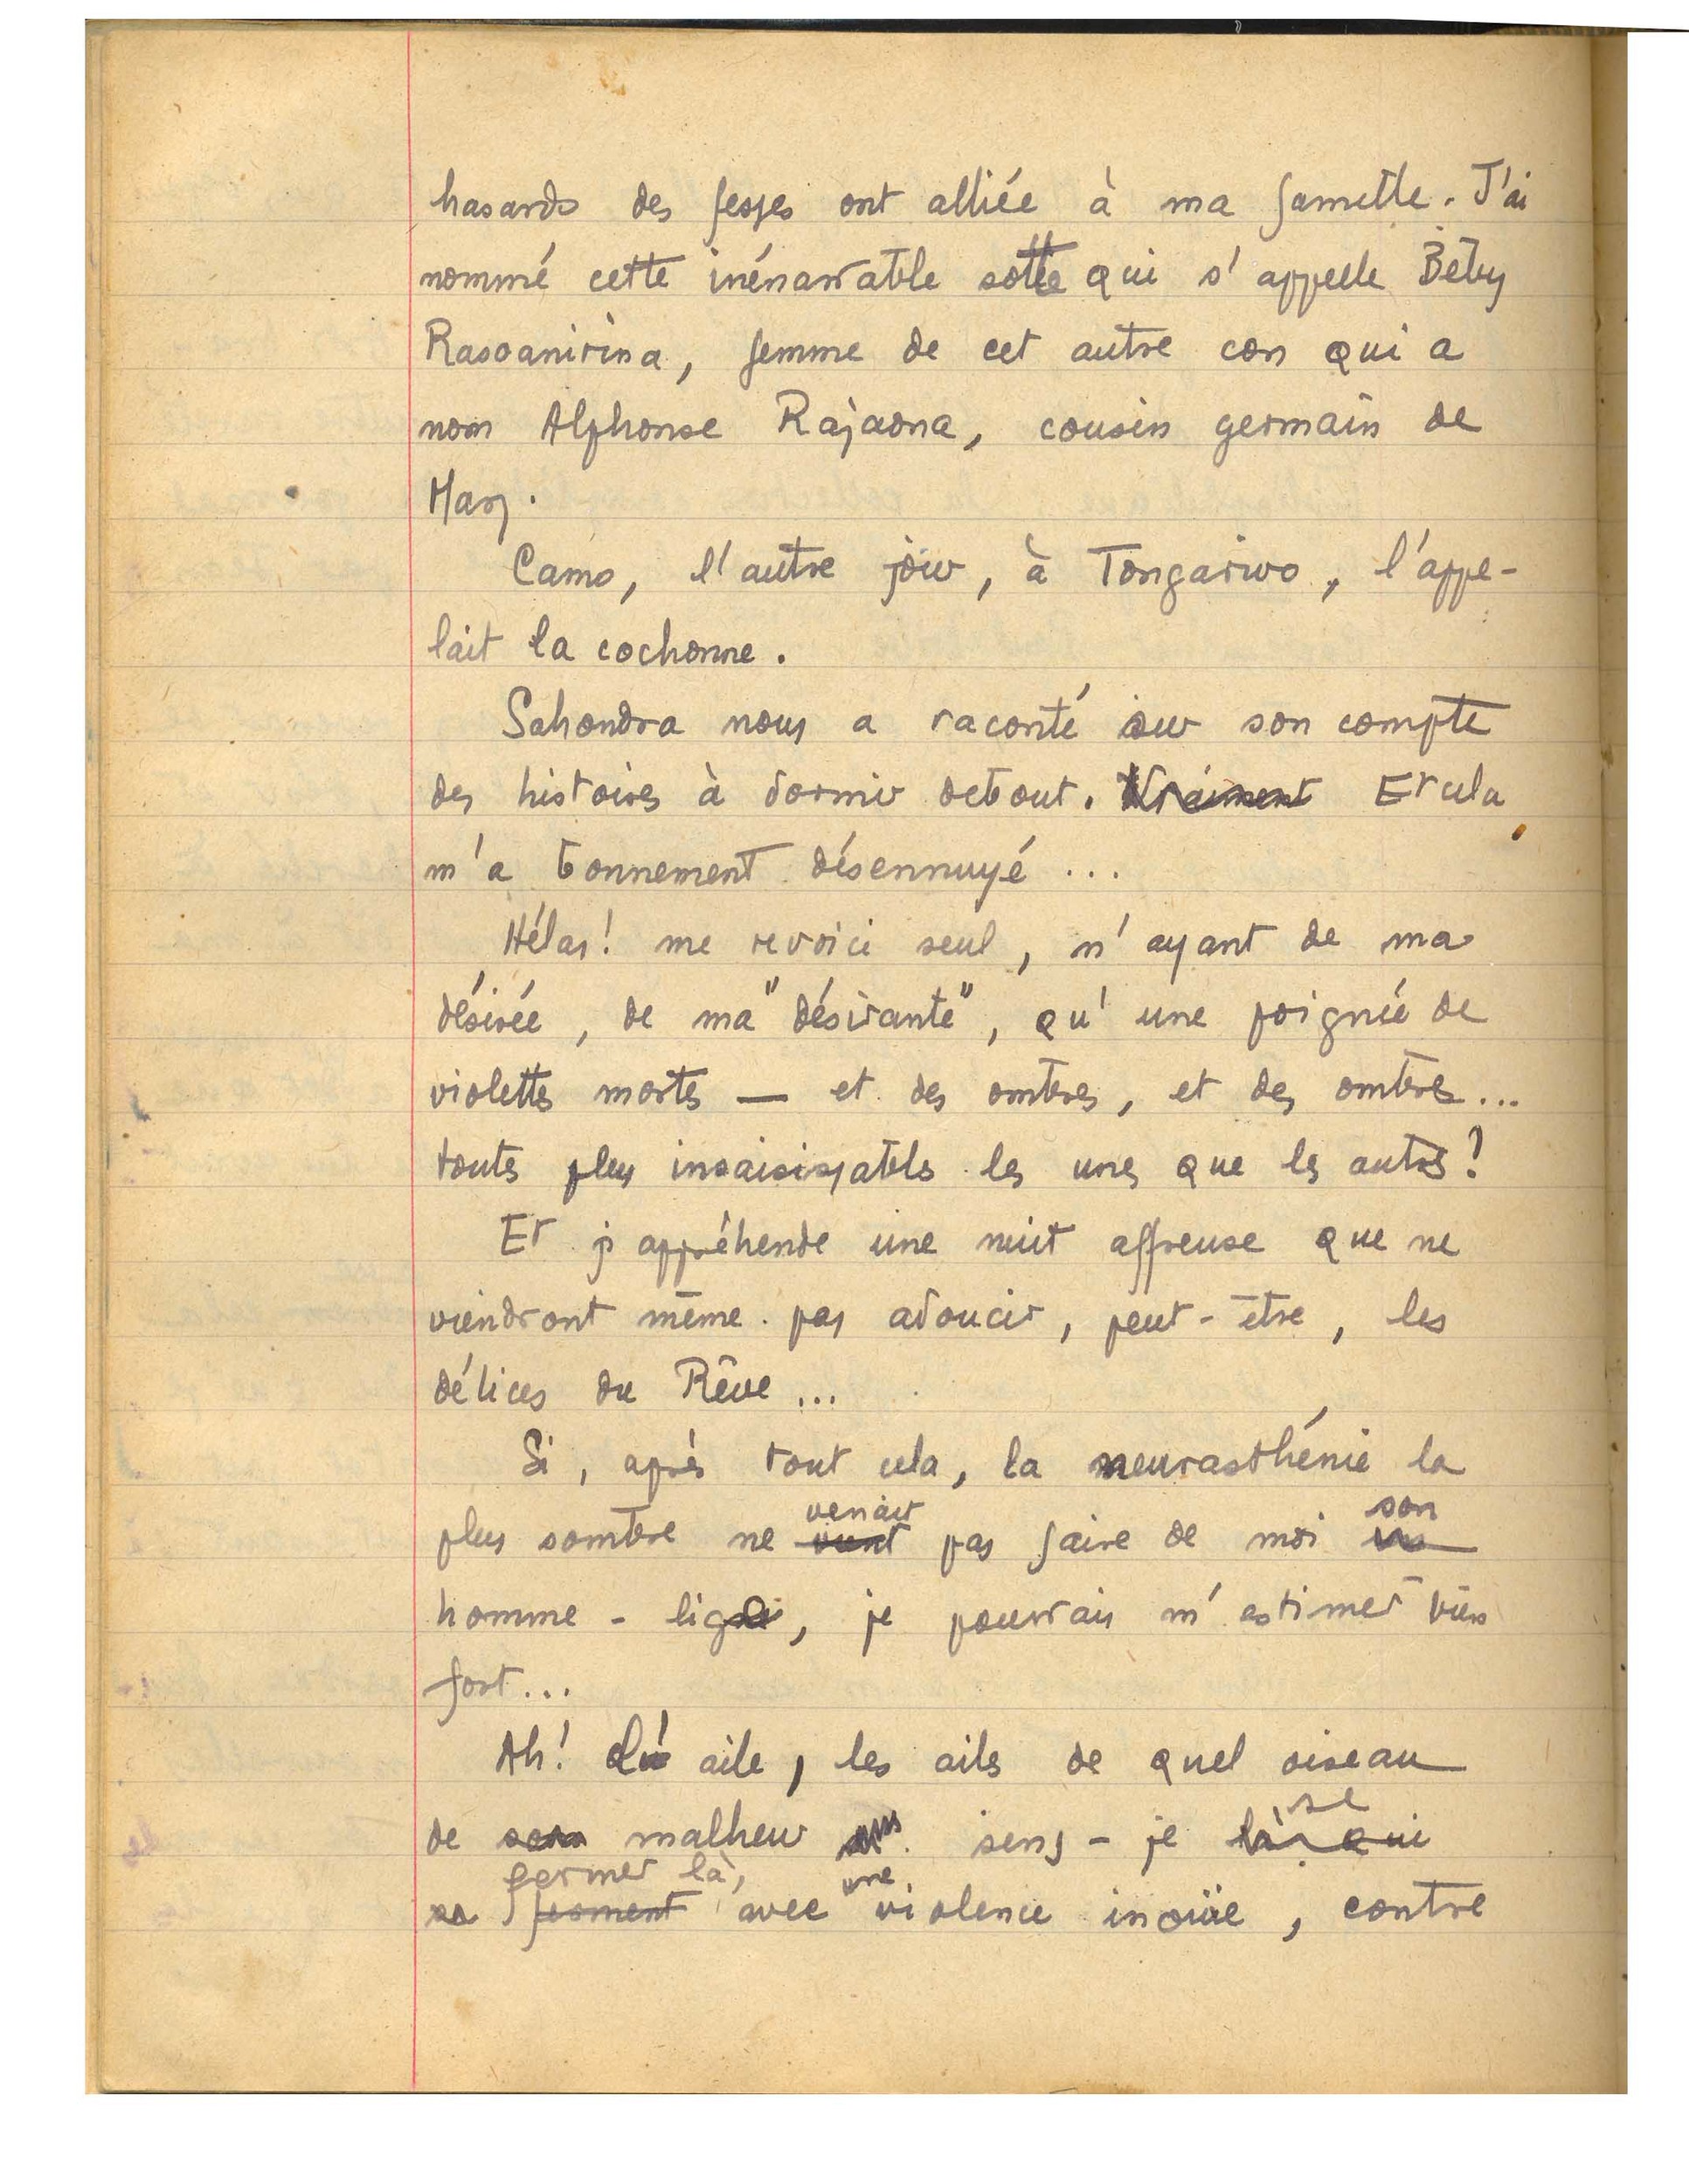 hasards des fesses ont alliée à ma famille. J'ai
nommé cette inénarrable sotte qui s'appelle Béby
Rasoanirina, femme de cet autre con qui a
nom Alphonse Rajaona, cousin germain de
Mary.
Camo, l'autre jour, à Tongarivo, l'appe-
lait la cochonne.
Sahondra nous a raconté sur son compte
des histoires à dormir debout. Vraiment Et cela
m'a bonnement désennuyé ...
Hélas! me revoici seul, n'ayant de ma
désirée, de ma "désirante", qu'une poignée de
violettes mortes — et des ombres, et des ombres...
toutes plus insaisissables les unes que les autres!
Et j'appréhende une nuit affreuse que ne
viendront même pas adoucir, peut-être, les
délices du Rêve ...
Si, après tout cela, la neurasthénie la
venait son
plus sombre ne vient pas faire de moi un
homme-lige, je pourrais m'estimer bien
fort...
Ah! L' aile, les ailes de quel oiseau
se
de malheur sens-je là qui
fermer là, une
se ferment avec violence inouïe, contre